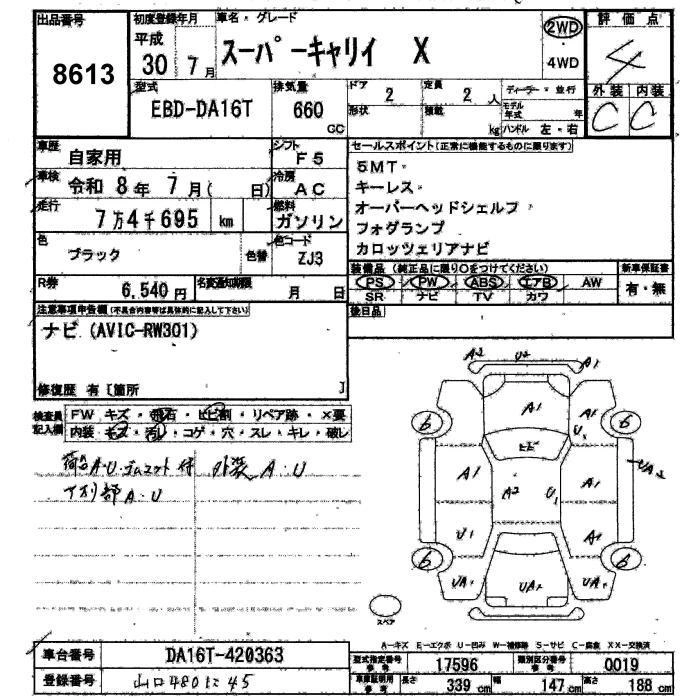 出品番号 初度登録年月 車名・グレード 評価点
8613 平成 30年 7月 スーパーキャリイ X 2WD 4WD 4
外装 内装
C C
型式 排気量 ドア 定員 ディーラー・並行
EBD-DA16T 660 CC 2 2人
形状 積載 kg モデル年式 年
ハンドル 左・右
車歴 自家用 シフト F5
車検 令和 8年 7月( 日) 冷房 AC
走行 7万4千695 km 燃料 ガソリン
色 ブラック 色替 色コード ZJ3
R券 6,540円 名変通知期限 月 日
セールスポイント(正常に機能するものに限ります)
5MT・
キーレス・
オーバーヘッドシェルフ
フォグランプ
カロッツェリアナビ
装備品 (純正品に限り○をつけてください) 新車保証書
PS PW ABS エアB AW 有・無
SR ナビ TV カワ
後日品
注意事項申告欄(不具合内容等は具体的に記入して下さい)
ナビ (AVIC-RW301)
修復歴 有 [箇所 ]
検査員記入欄
FW キズ・飛石・ヒビ割・リペア跡・×要
内装・キズ・汚れ・コゲ・穴・スレ・キレ・破レ
荷台A・U・ゴムマット付 外装 A・U
下廻り部 A・U
A2 U2 A1
6 A1 A1 6
U1
ヒビ
A1 A2 U1 A1 UA2
U1 A1
6 6
UA1 UA2 UA2
スペア
A-キズ E-エクボ U-凹み W-補修跡 S-サビ C-腐食 XX-交換済
車台番号 DA16T-420363
登録番号 山口480に45
型式指定番号 参考 17596 類別区分番号 参考 0019
車庫証明用 参考 長さ 339 cm 幅 147 cm 高さ 188 cm